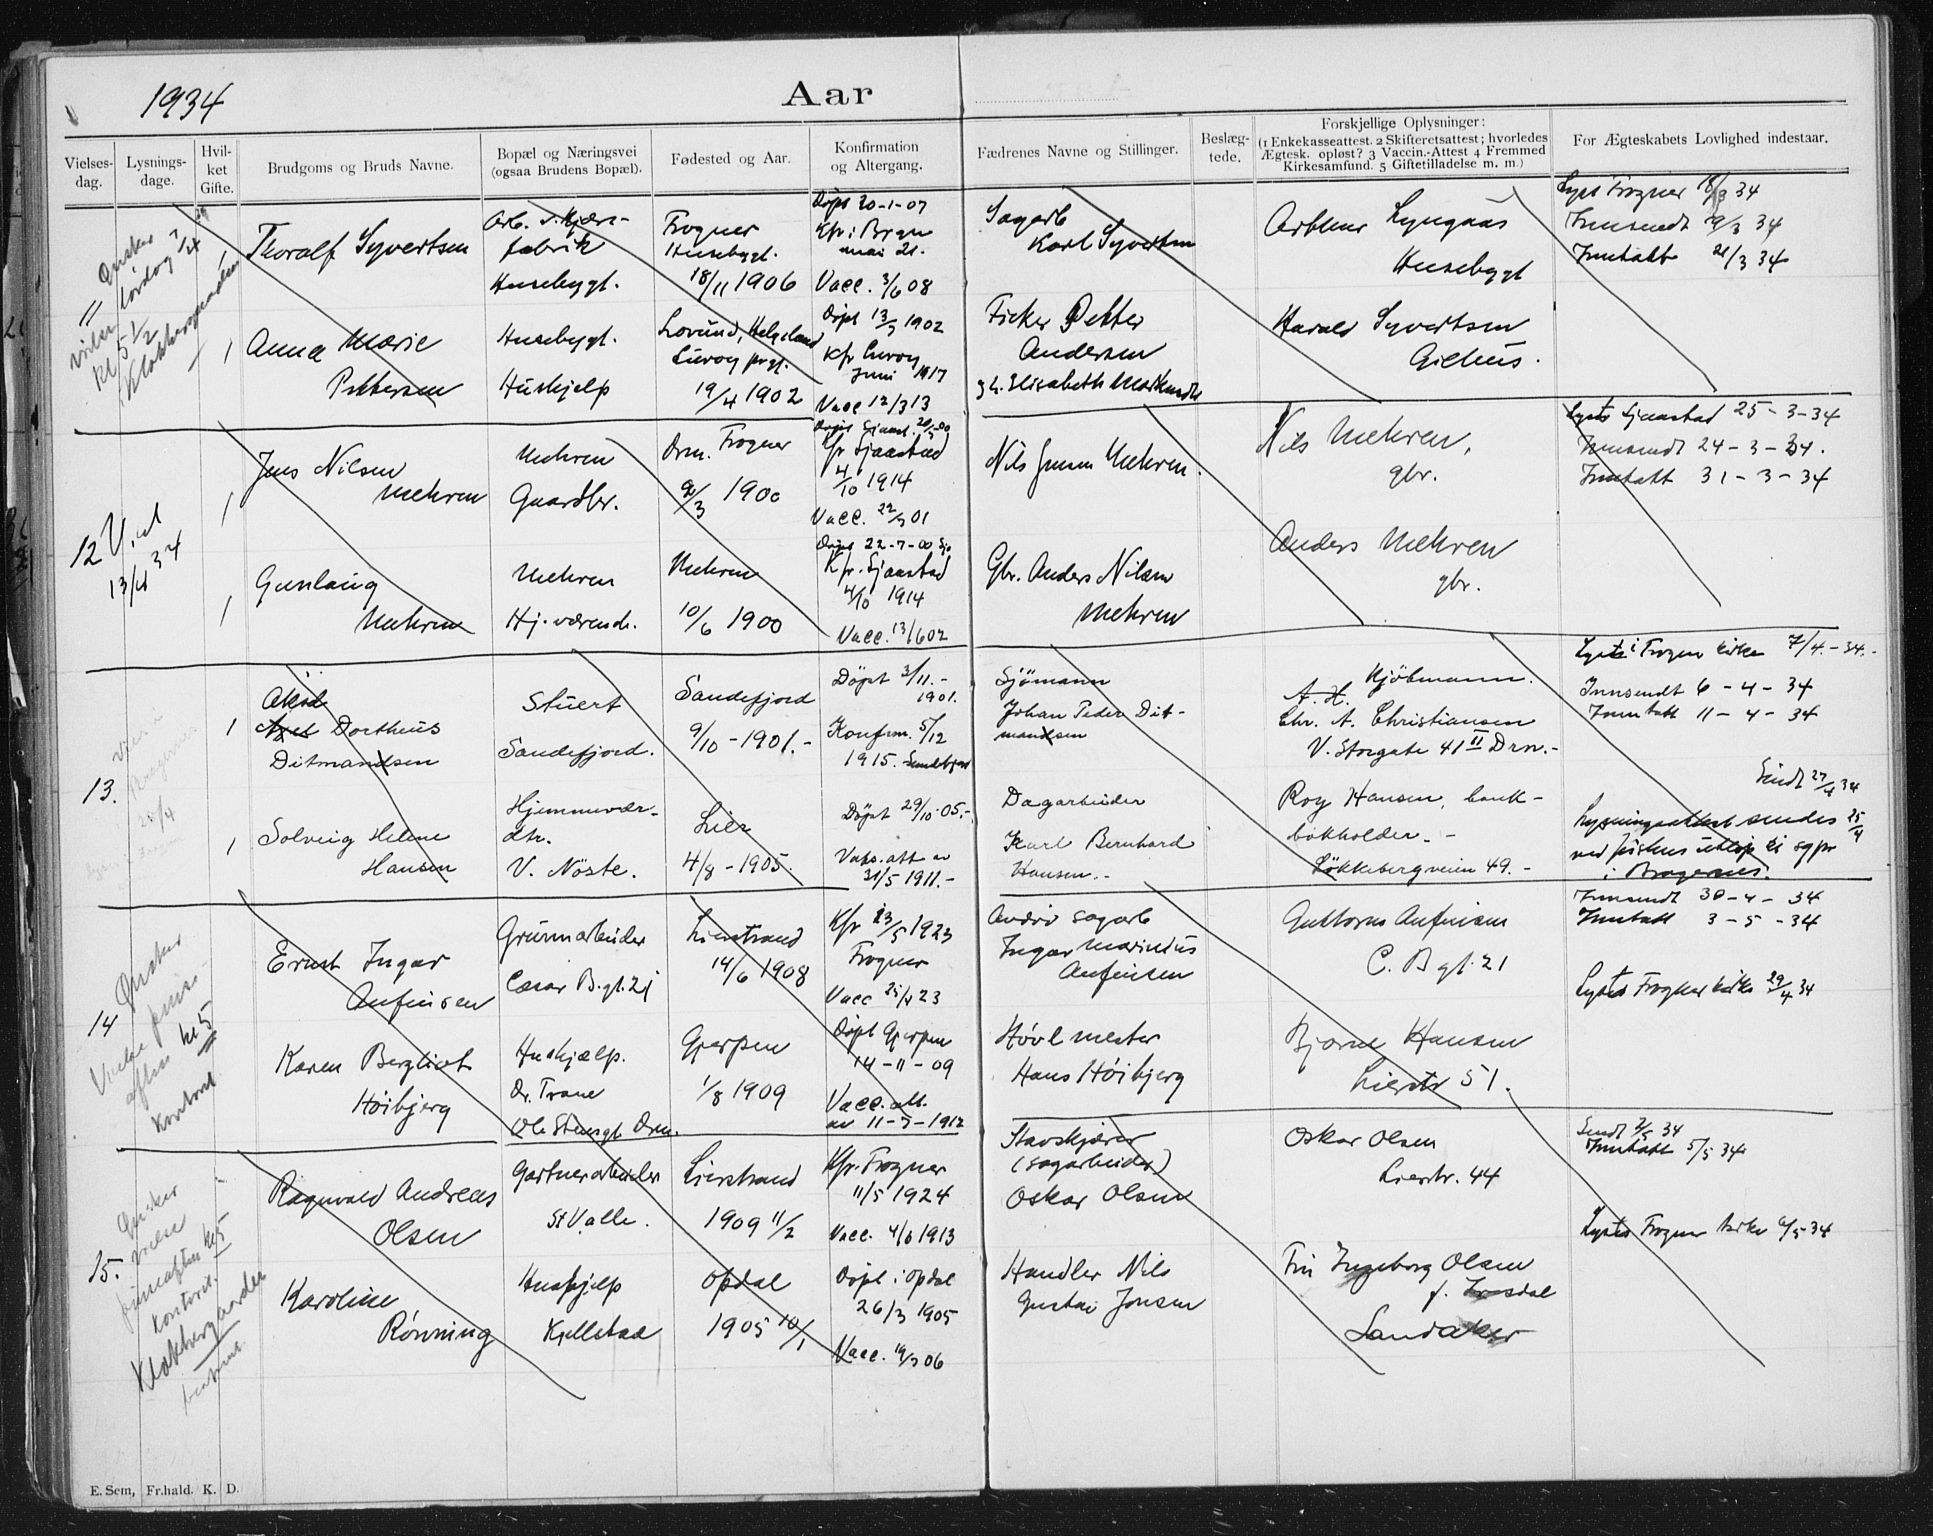 1934
Aar
Vielses-dag.
Lysnings-dage.
Hvil-ket Gifte.
Brudgoms og Bruds Navne.
Bopæl og Næringsvei
(ogsaa Brudens Bopæl).
Fødested og Aar.
Konfirmation
og Altergang.
Fædrenes Navne og Stillinger.
Beslæg-
tede.
Forskjellige Oplysninger:
(1 Enkekasseattest. 2 Skifteretsattest; hvorledes
Ægtesk. opløst? 3 Vaccin.-Attest 4 Fremmed
Kirkesamfund. 5 Giftetilladelse m. m.)
For Ægteskabets Lovlighed indestaar.
11 Ønsker
vielse lørdag 7/4
kl 5 1/2
Klokkergaarden
1
Thoralf Syvertsen
fabrik
Husebygt.
Frogner
Husebygt.
18/11 1906
Døpt 20-1-07
Kfr. i
mai 21.
Vacc. 3/6 08
Sagarb
Karl Syvertsen
Arthur Lyngaas
Husebygt
Lyst Frogner 18/3 34
Innsendt 19/3 34
Inntatt 21/3 34
1
Anna Marie
Pettersen
Husebygt.
Hushjelp
Lovund, Helgeland
Lurøy prgj.
19/4 1902
Døpt 13/7 1902
Kfr Lurøy
Juni 1917
Vacc 12/3 13
Fisker Petter
Andersen
Harald Syvertsen
Gilhus.
12
Viet
13/4 34
1
Jens Nilsen
Mehren
Mehren
Gaardbr.
Drm. Frogner
2/3 1900
Kfr Sjaastad
4/10 1914
Vacc. 22/7 01
Nils Jensen Mehren.
Nils Mehren,
gbr.
Lyste Sjaastad 25-3-34
Innsendt 24-3-34.
Inntatt 31-3-34
1
Gunlaug
Mehren
Mehren
Hj. værende.
Mehren
10/6 1900
Døpt 22-7-00 Sjo
Kfr. Sjaastad
4/10 1914
Vacc. 13/6 02
Gbr. Anders Nilsen
Mehren
Anders Mehren
gbr.
13.
viet
Bragernes
25/4
1
Aksel
Axel Dortheus
Ditmandsen
Stuert
Sandefjord.
Sandefjord
9/10-1901.-
Døpt 3/11.-
1901.
Konfirm. 5/12
1915.
Sjömann
Johan Peder Dit-
mandsen
Kjöbmann.
A. H.
Chr. A. Christiansen
V. Storgate 41 II Drm.-
Lyste i Frogner kirke 7/4.-34.-
Innsendt 6-4-34
Inntatt 11-4-34
1
Solveig Helene
Hansen
Hjemmevær-
ende.
V. Nöste.
Lier
4/8-1905.
Döpt 29/10-05.-
Vaks. att av
31/5 1911.-
Dagarbeider
Karl Bernhard
Hansen.-
Roy Hansen, bank-
bokholder.-
Løkkebergveien 49.-
Sendt 27/4 34
Lysningsattest sendes 25/4
i Bragernes.
14
Ønsker
Vielse pinse-
aften kl 5
Kontoret
Ernst Ingar
Anfinsen
Grünnarbeider
Cæsar B.gt. 21
Lierstrand
14/6 1908
Kfr 13/5 1923
Frogner
Vacc 25/4 23
Andrs sagarb
Ingar Marinius
Anfinsen
Guttorm Anfinsen
C. B gt. 21
Innsendt 30-4-34
Inntatt 3-5-34
Lystes Frogner kirke 29/4 34
Karen Bergliot
Høibjerg
Huskjælp.
Dr. Trane
Ole Steensgt. Drm.
Gjerpen
1/8 1909
Døpt Gjerpen
14-11-09
Vacc. att.
av 11-7-1912
Høvlmester
Hans Høibjerg
Bjarne Hansen
Lierstr 51.
15.
Ønsker
vielse
pinseaften kl 5
kontoret.
Klokkergaarden
Ragnvald Andreas
Olsen
Gartnerarbeider
St Valle.
Lierstrand
1909 11/2
Kfr. Frogner
11/5 1924
Vacc. 4/6 1913
Stavskjærer
(sagarbeider)
Oskar Olsen
Oskar Olsen
Lierstr. 44
Sendt 2/5 34
Inntatt 5/5 34
Lystes Frogner kirke 6/5 34
Karoline
Rønning
Hushjelp
Kjellstad
Opdal
1905 10/1
Døpt i Opdal
26/3 1905
Vacc. 19/7 06
Handler Nils
Gustav Jonsen
Fru Ingeborg Olsen
Landaker
E. Sem, Fr.hald. K. D.